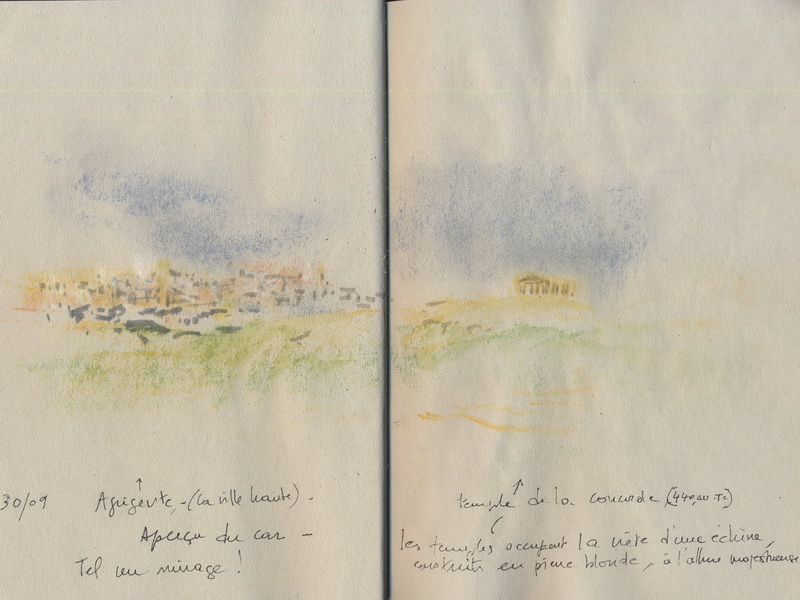 30/09 Agrigente - (la ville haute) -
Aperçu du car -
Tel un mirage !
temple de la concorde (440 av JC)
les temples occupent la crête d'une échine,
construits en pierre blonde, à l'allure majestueuse